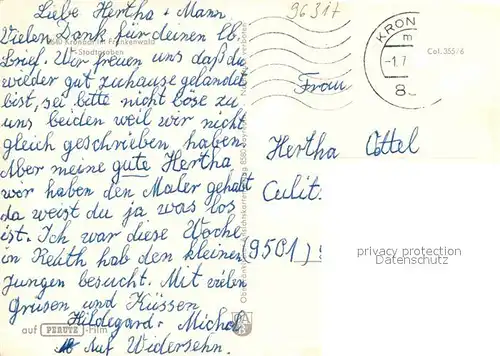 Liebe Hertha + Mann
Vielen Dank für deinen lb.
Brief. Wir freuen uns daß du
wilder gut zuhause gelandet
bist, sei bitte nicht böse zu
uns beiden weil wir nicht
gleich geschrieben haben.
Aber meine gute Hertha
wir haben den Maler gehabt
da weist du ja was los
ist. Ich war diese Woche
in Reuth hab den kleinen
Jungen besucht. Mit vielen
Grüsen und Küssen
Hildegard + Michel
Auf Widersehn.
Kronach im Frankenwald
Stadtgraben
auf PERUTZ-Film
96317
KRON
-1.7
8
Col. 355/6
Frau
Hertha Ottel
Culit.
(9501)
privacy protection
Datenschutz